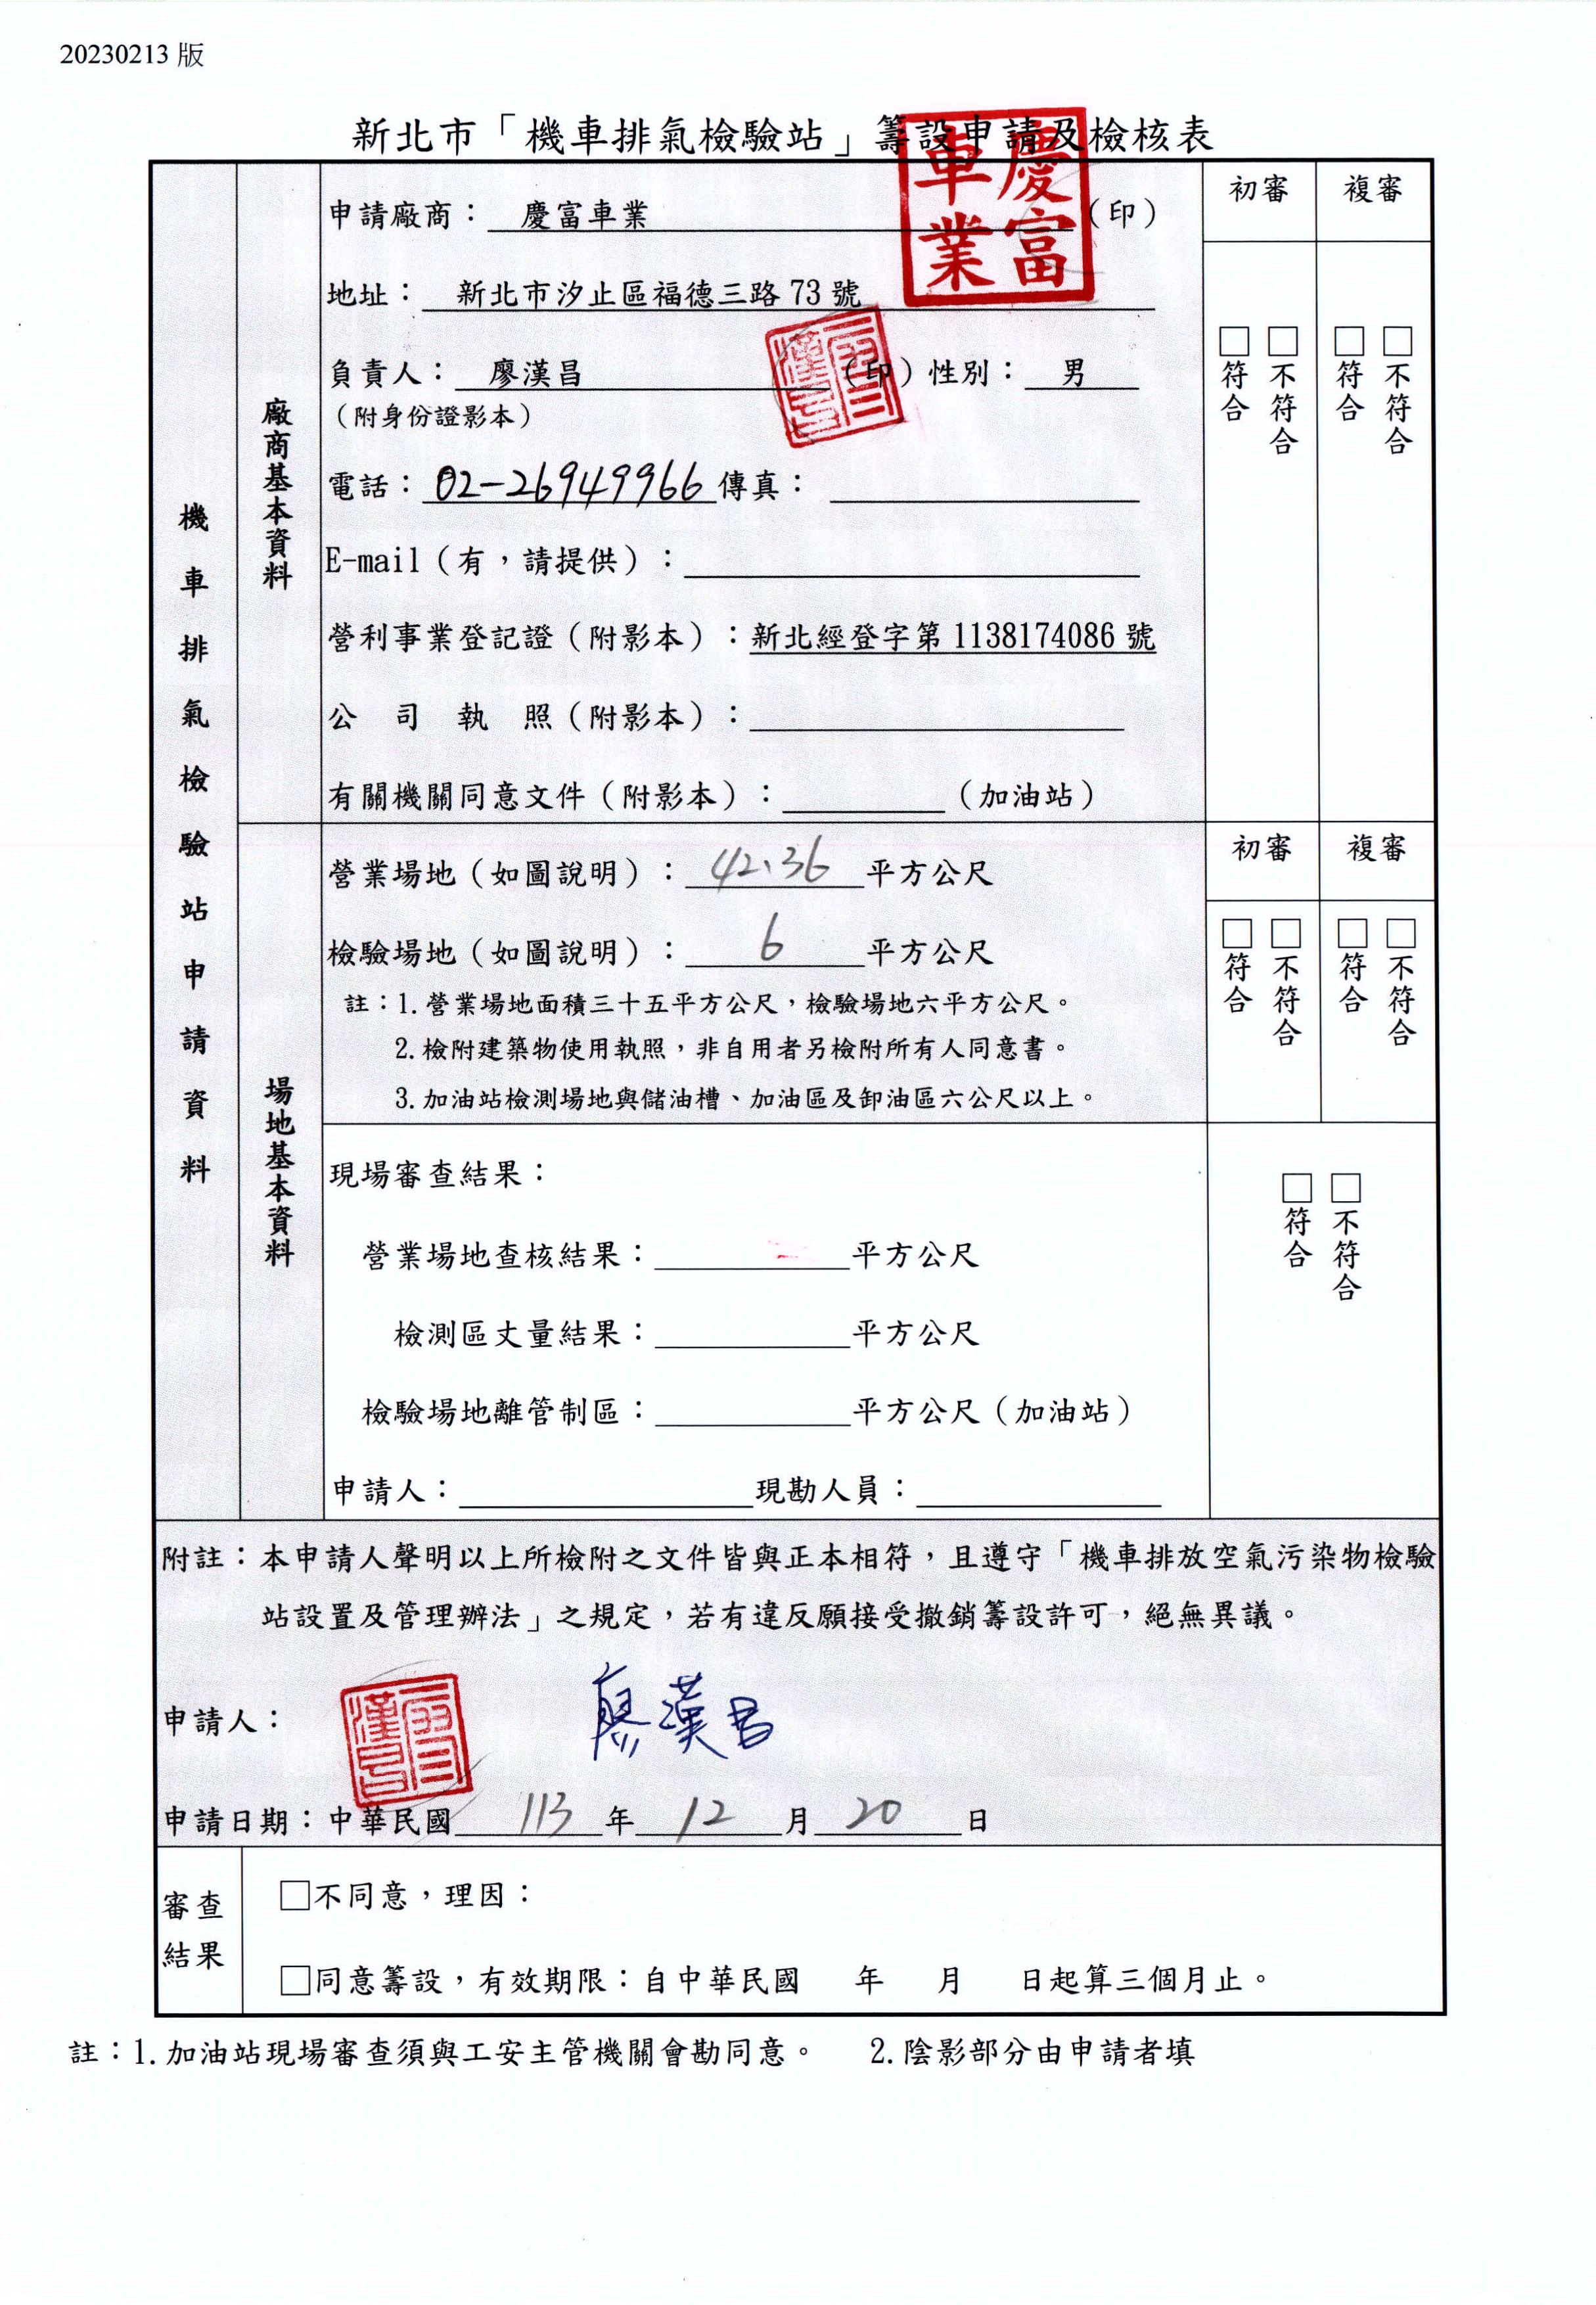 20230213 版
新北市「機車排氣檢驗站」籌設申請及檢核表
機車排氣檢驗站申請資料
廠商基本資料
申請廠商： 慶富車業 （印）
慶富車業
地址： 新北市汐止區福德三路 73 號
負責人： 廖漢昌 （印）性別： 男
（附身份證影本）
電話：02-26949966 傳真：
E-mail（有，請提供）：
營利事業登記證（附影本）：新北經登字第 1138174086 號
公 司 執 照（附影本）：
有關機關同意文件（附影本）： （加油站）
初審 複審
□符合 □不符合 □符合 □不符合
場地基本資料
營業場地（如圖說明）： 42.36 平方公尺
檢驗場地（如圖說明）： 6 平方公尺
註：1.營業場地面積三十五平方公尺，檢驗場地六平方公尺。
2.檢附建築物使用執照，非自用者另檢附所有人同意書。
3.加油站檢測場地與儲油槽、加油區及卸油區六公尺以上。
初審 複審
□符合 □不符合 □符合 □不符合
現場審查結果：
營業場地查核結果： 平方公尺
檢測區丈量結果： 平方公尺
檢驗場地離管制區： 平方公尺（加油站）
申請人： 現勘人員：
□符合 □不符合
附註：本申請人聲明以上所檢附之文件皆與正本相符，且遵守「機車排放空氣污染物檢驗
站設置及管理辦法」之規定，若有違反願接受撤銷籌設許可，絕無異議。
申請人： 廖漢昌
申請日期：中華民國 113 年 12 月 20 日
審查結果
□不同意，理因：
□同意籌設，有效期限：自中華民國 年 月 日起算三個月止。
註：1.加油站現場審查須與工安主管機關會勘同意。 2.陰影部分由申請者填